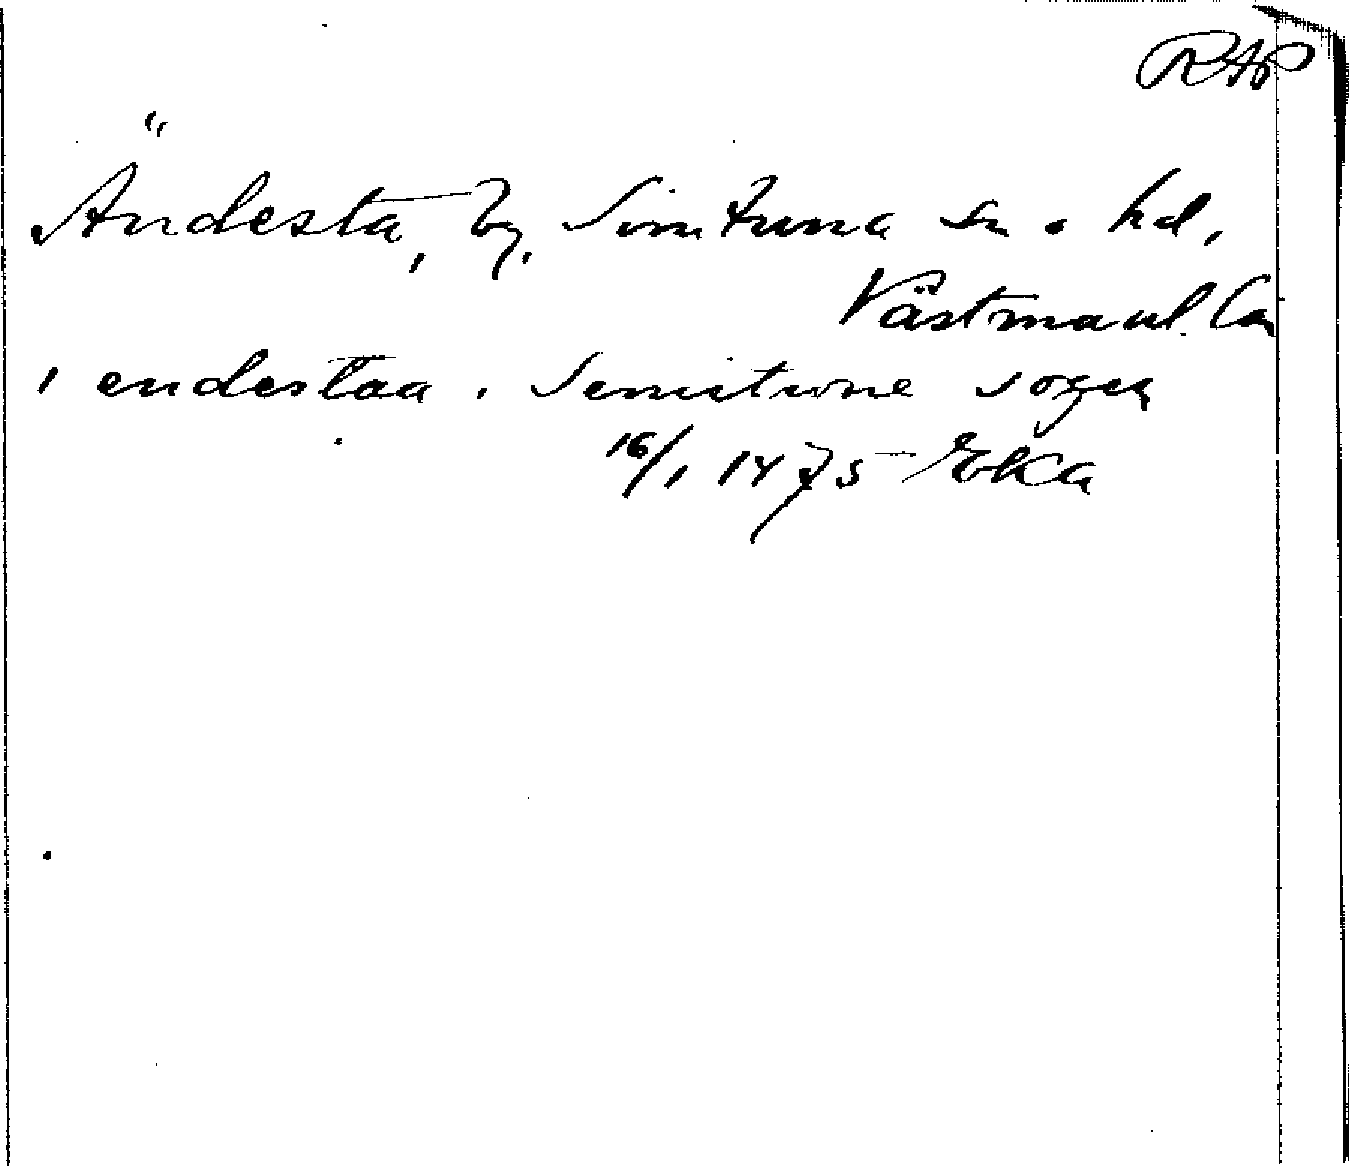 RAP
Ändesta, by, Simtuna sn o hd,
Västmanl. län
i endestaa i Semitune sogen
16/1 1475 EkA